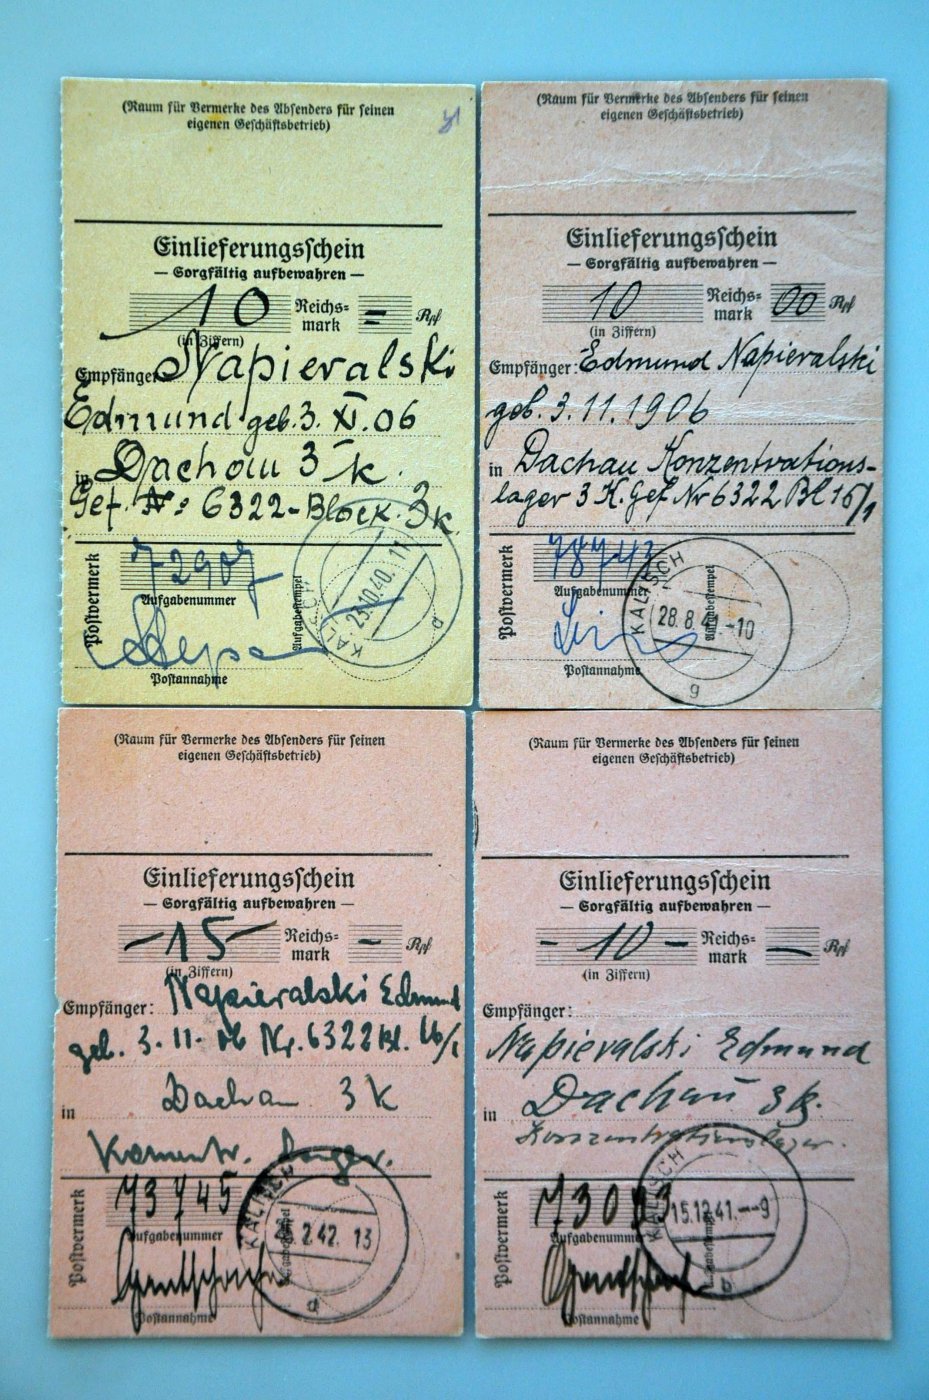 (Raum für Vermerke des Absenders für seinen
eigenen Geschäftsbetrieb)
Einlieferungsschein
— Sorgfältig aufbewahren —
10 Reichs-
mark = Rpf
(in Ziffern)
Empfänger: Napieralski
Edmund geb. 3. XI. 06
in Dachau 3 K.
Gef. Nr: 6322-Block. 3K
Postvermerk
72907
Aufgabenummer
Aufgabestempel
KALISCH
23.10.40. 11
Postannahme
(Raum für Vermerke des Absenders für seinen
eigenen Geschäftsbetrieb)
Einlieferungsschein
— Sorgfältig aufbewahren —
10 Reichs-
mark 00 Rpf
(in Ziffern)
Empfänger: Edmund Napieralski
geb. 3.11.1906
in Dachau Konzentrations-
lager 3 K. Gef. Nr 6322 Bl 16/1
Postvermerk
78743
Aufgabenummer
Aufgabestempel
KALISCH
28.8.41.-10
g
Postannahme
(Raum für Vermerke des Absenders für seinen
eigenen Geschäftsbetrieb)
Einlieferungsschein
— Sorgfältig aufbewahren —
-15- Reichs-
mark - Rpf
(in Ziffern)
Empfänger: Napieralski Edmund
geb. 3. 11. 06 Nr. 6322 Bl. 16/1
in Dachau 3 K
Postvermerk
73745
Aufgabenummer
Aufgabestempel
KALISCH
2.42. 13
d
Postannahme
(Raum für Vermerke des Absenders für seinen
eigenen Geschäftsbetrieb)
Einlieferungsschein
— Sorgfältig aufbewahren —
- 10 - Reichs-
mark — Rpf
(in Ziffern)
Empfänger:
Napieralski Edmund
in Dachau 3 K.
Konzentrationslager.
Postvermerk
73093
Aufgabenummer
Aufgabestempel
KALISCH
15.12.41.--9
b
Postannahme